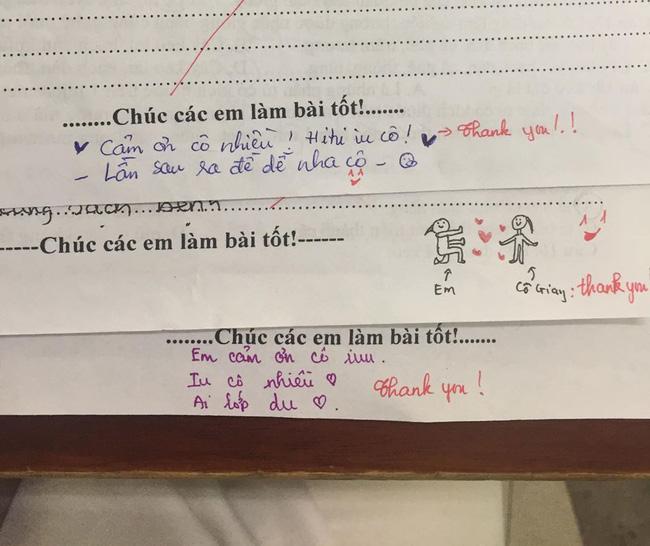 .........Chúc các em làm bài tốt!.......
Cảm ơn cô nhiều! Hihi iu cô! → Thank you!.!
- Lần sau ra đề dễ nha cô -
-----Chúc các em làm bài tốt!------
Em
Cô Giay: thank you
........Chúc các em làm bài tốt!.......
Em cảm ơn cô iuu.
Iu cô nhiều ♡ Thank you!
Ai lớp du ♡.